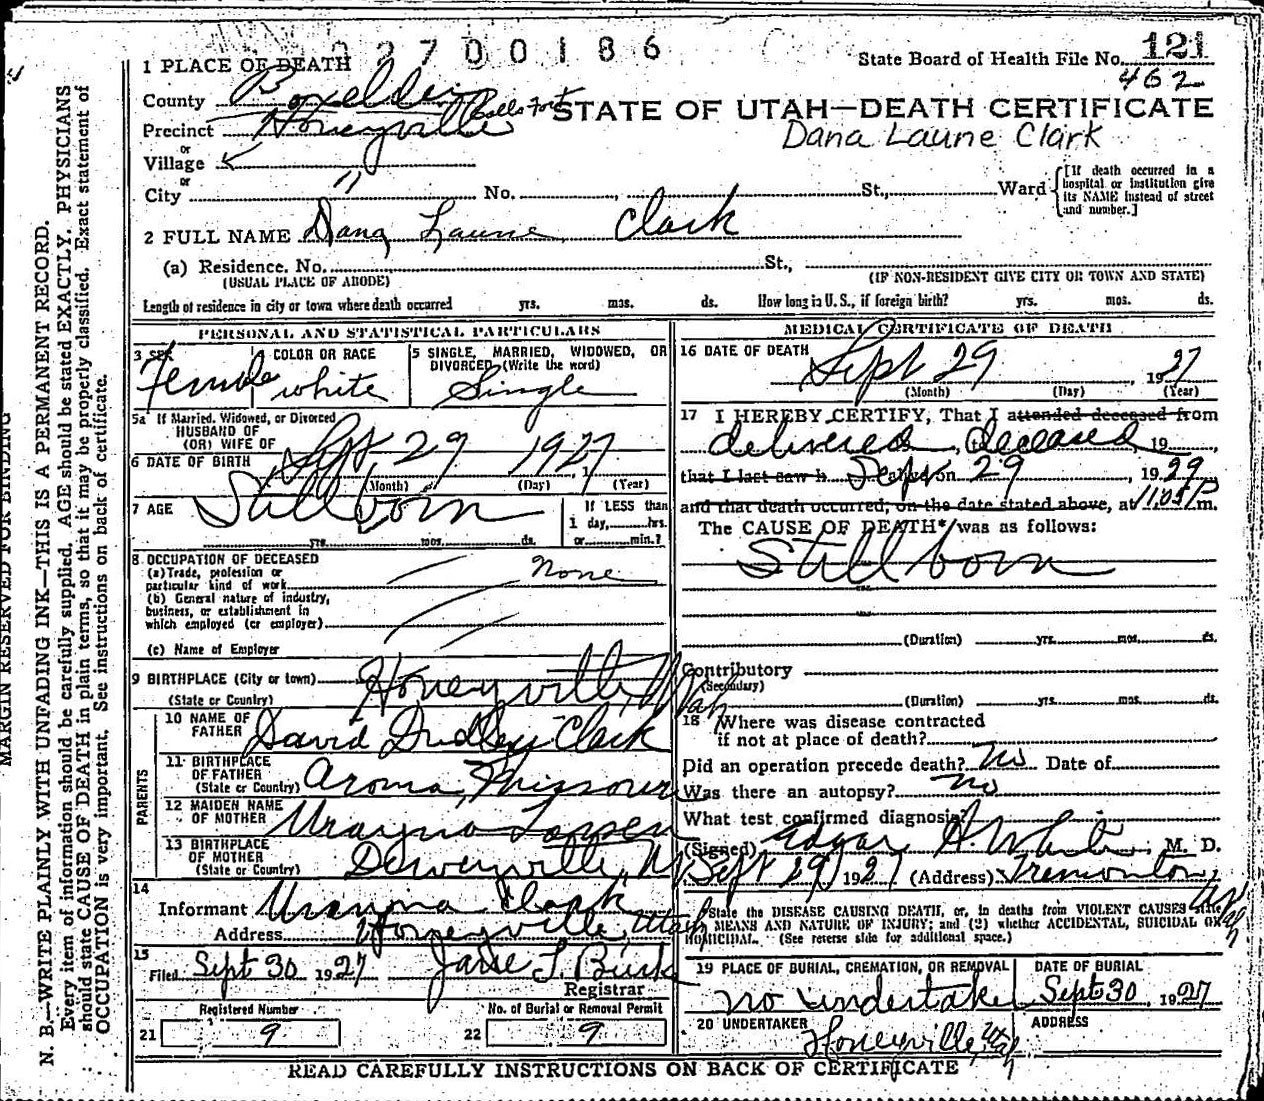 2700186
State Board of Health File No. 121
462
1 PLACE OF DEATH
County Boxelder
STATE OF UTAH—DEATH CERTIFICATE
Precinct Honeyville
Dana Laune Clark
or
Village
or
City " No. St., Ward
[If death occurred in a hospital or institution give its NAME instead of street and number.]
2 FULL NAME Dana Laune Clark
(a) Residence. No. St.,
(USUAL PLACE OF ABODE) (IF NON-RESIDENT GIVE CITY OR TOWN AND STATE)
Length of residence in city or town where death occurred yrs. mos. ds. How long in U. S., if foreign birth? yrs. mos. ds.
PERSONAL AND STATISTICAL PARTICULARS
3 SEX COLOR OR RACE 5 SINGLE, MARRIED, WIDOWED, OR DIVORCED (Write the word)
Female white Single
5a If Married, Widowed, or Divorced
HUSBAND OF
(OR) WIFE OF
6 DATE OF BIRTH Sept 29 1927
(Month) (Day) (Year)
7 AGE Stillborn If LESS than
1 day, hrs.
yrs. mos. ds. or min.?
8 OCCUPATION OF DECEASED
(a) Trade, profession or
particular kind of work None
(b) General nature of industry,
business, or establishment in
which employed (or employer)
(c) Name of Employer
9 BIRTHPLACE (City or town) Honeyville, Utah
(State or Country)
PARENTS
10 NAME OF
FATHER David Dudley Clark
11 BIRTHPLACE
OF FATHER
(State or Country) Aroma, Missouri
12 MAIDEN NAME
OF MOTHER
13 BIRTHPLACE
OF MOTHER
(State or Country) Deweyville, U
14
Informant Clark
Address Honeyville, Utah
15
Filed Sept 30 1927
Registrar
Registered Number No. of Burial or Removal Permit
21 9 22 9
MEDICAL CERTIFICATE OF DEATH
16 DATE OF DEATH Sept 29, 1927
(Month) (Day) (Year)
17 I HEREBY CERTIFY, That I attended deceased from
delivered, to deceased, 19
that I last saw h Sept on 29, 1929
and that death occurred, on the date stated above, at 11:05 P m.
The CAUSE OF DEATH* was as follows:
Stillborn
(Duration) yrs. mos. ds.
Contributory
(Secondary)
(Duration) yrs. mos. ds.
18 Where was disease contracted
if not at place of death?
Did an operation precede death? No Date of
Was there an autopsy? No
What test confirmed diagnosis?
(Signed) Edgar H. White, M. D.
Sept 29, 1927 (Address) Tremonton, Utah
*State the DISEASE CAUSING DEATH, or, in deaths from VIOLENT CAUSES state
MEANS AND NATURE OF INJURY; and (2) whether ACCIDENTAL, SUICIDAL OR
HOMICIDAL. (See reverse side for additional space.)
19 PLACE OF BURIAL, CREMATION, OR REMOVAL DATE OF BURIAL
no undertaker Sept 30, 1927
20 UNDERTAKER ADDRESS
Honeyville, Utah
READ CAREFULLY INSTRUCTIONS ON BACK OF CERTIFICATE
MARGIN RESERVED FOR BINDING
N. B.—WRITE PLAINLY WITH UNFADING INK—THIS IS A PERMANENT RECORD.
Every item of information should be carefully supplied. AGE should be stated EXACTLY. PHYSICIANS
should state CAUSE OF DEATH in plain terms, so that it may be properly classified. Exact statement of
OCCUPATION is very important. See instructions on back of certificate.